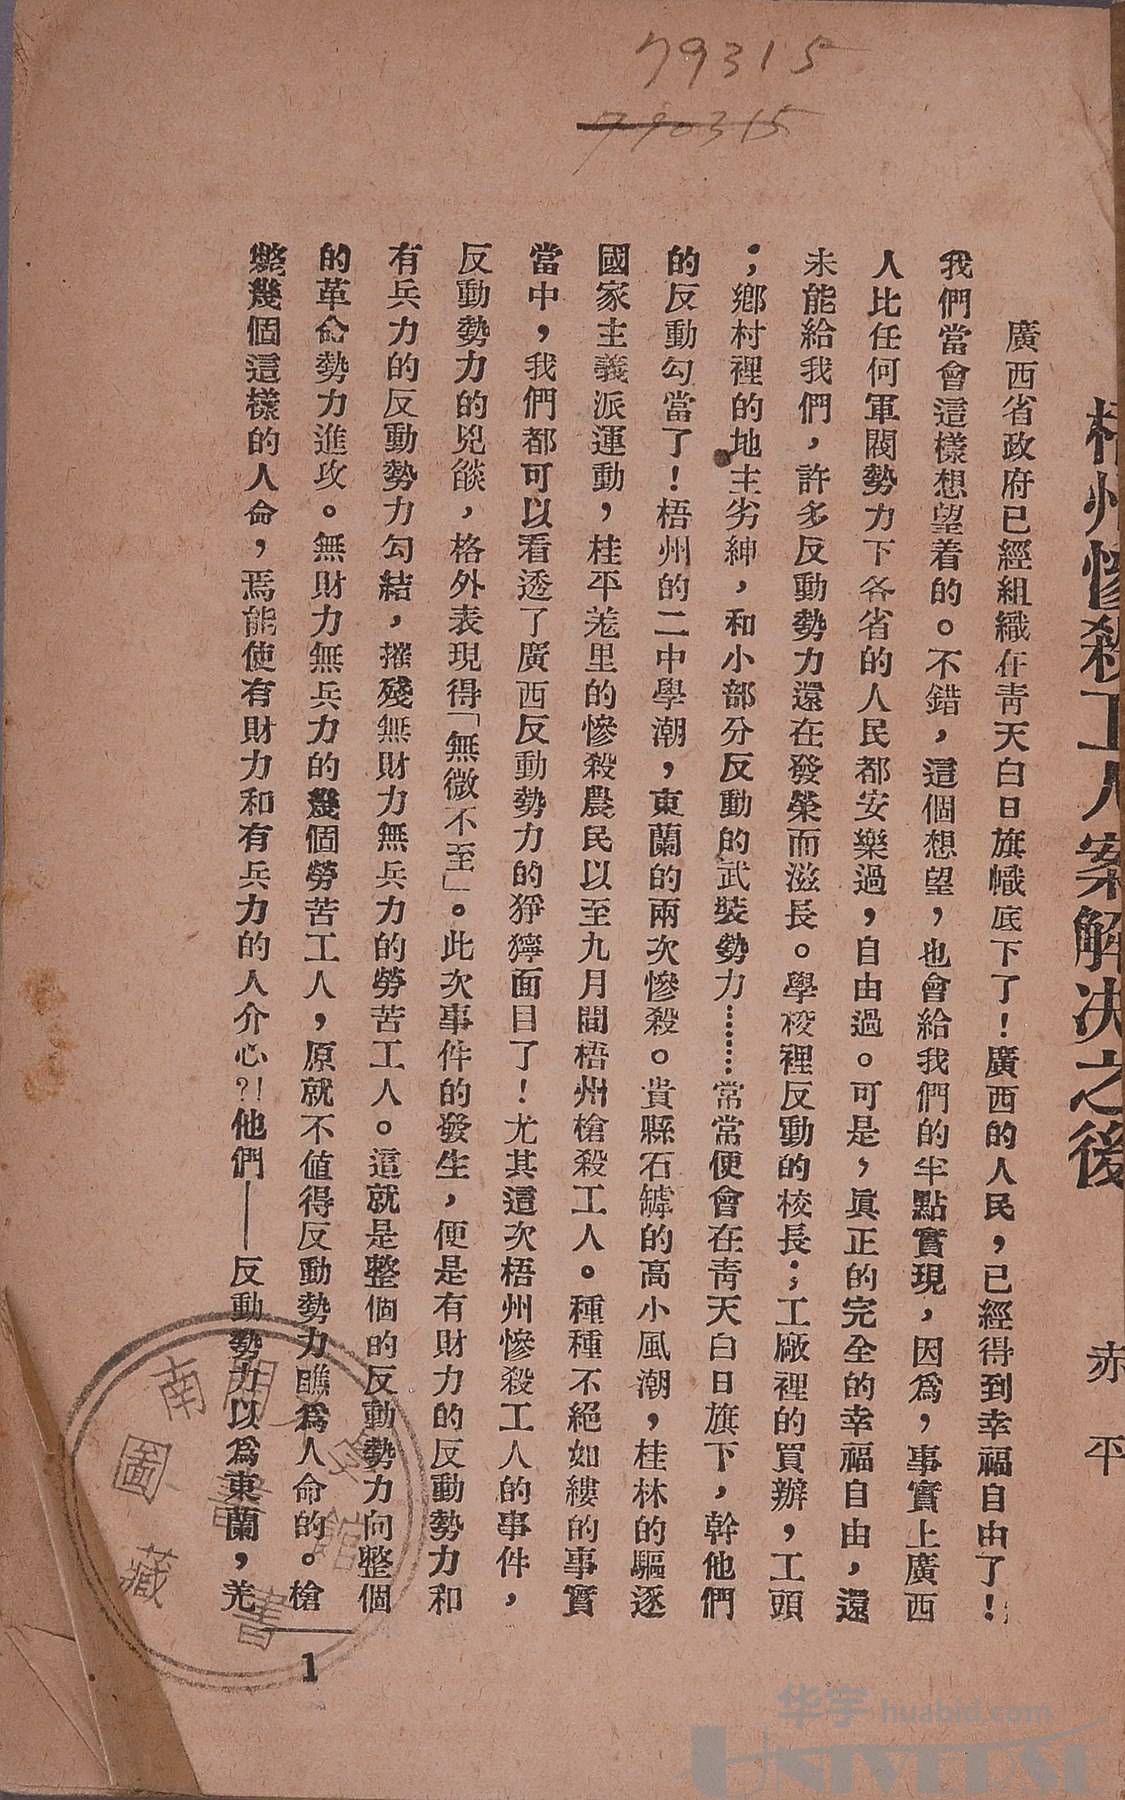 79315
790315
梧州慘殺工人案解决之後
赤平
廣西省政府已經組織在靑天白日旗幟底下了！廣西的人民，已經得到幸福自由了！
我們當會這樣想望着的。不錯，這個想望，也會給我們的半點實現，因爲，事實上廣西
人比任何軍閥勢力下各省的人民都安樂過，自由過。可是，眞正的完全的幸福自由，還
未能給我們，許多反動勢力還在發榮而滋長。學校裡反動的校長；工廠裡的買辦，工頭
；鄕村裡的地主劣紳，和小部分反動的武裝勢力………常常便會在靑天白日旗下，幹他們
的反動勾當了！梧州的二中學潮，東蘭的兩次慘殺。貴縣石罅的高小風潮，桂林的驅逐
國家主義派運動，桂平羗里的慘殺農民以至九月間梧州槍殺工人。種種不絕如縷的事實
當中，我們都可以看透了廣西反動勢力的猙獰面目了！尤其這次梧州慘殺工人的事件，
反動勢力的兇燄，格外表現得「無微不至」。此次事件的發生，便是有財力的反動勢力和
有兵力的反動勢力勾結，摧殘無財力無兵力的勞苦工人。這就是整個的反動勢力向整個
的革命勢力進攻。無財力無兵力的幾個勞苦工人，原就不値得反動勢力瞧爲人命的。槍
斃幾個這樣的人命，焉能使有財力和有兵力的人介心?!他們——反動勢力以爲東蘭，羗
1
南開大學
圖書館
藏書
华宇 huabid.com
UNIVERSE